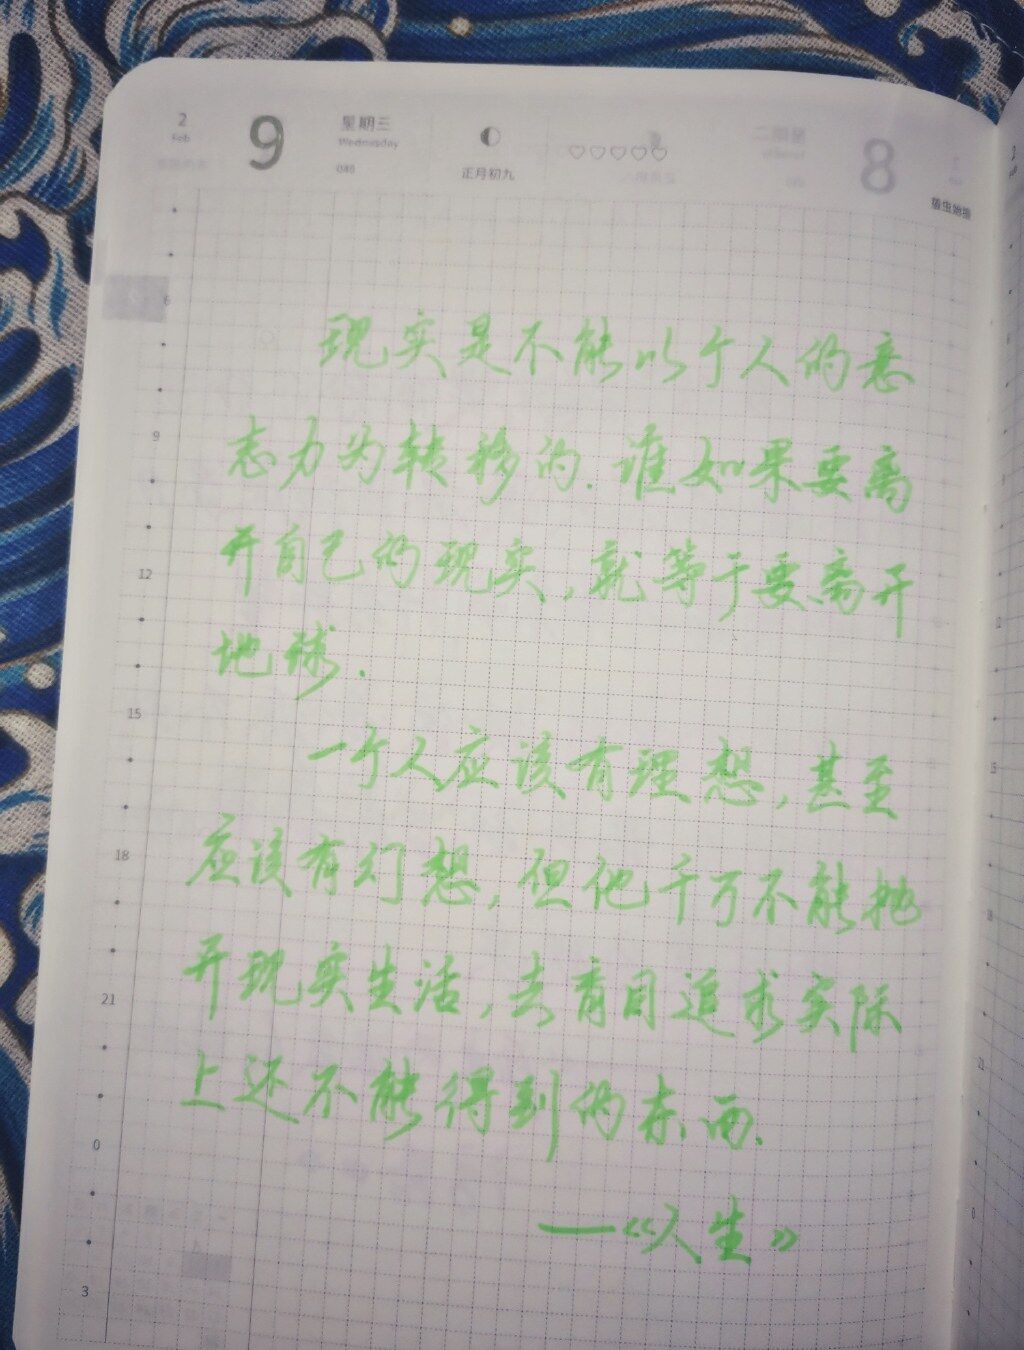 2
Feb
9
星期三
Wednesday
040
正月初九
8
蛰虫始振
现实是不能以个人的意
志力为转移的.谁如果要离
开自己的现实,就等于要离开
地球.
一个人应该有理想,甚至
应该有幻想,但他千万不能抛
开现实生活,去盲目追求实际
上还不能得到的东西.
——《人生》
6
9
12
15
18
21
0
3